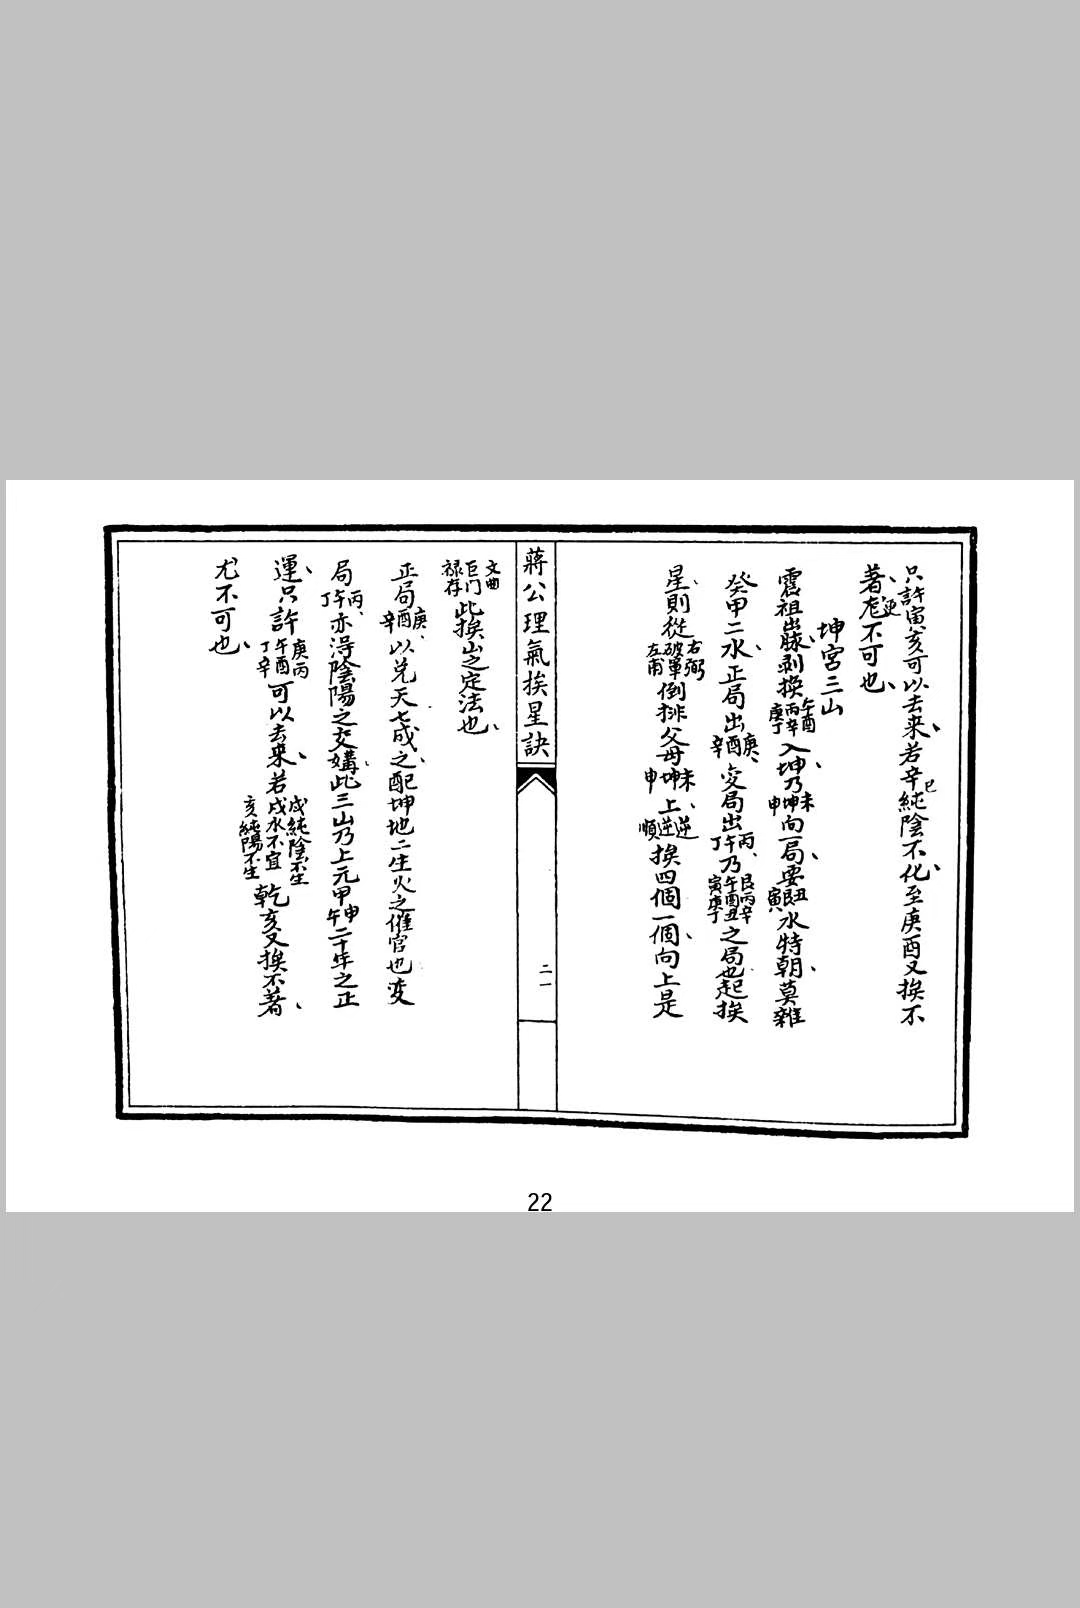 只許寅亥可以去來、若辛巳純陰不化、至庚酉又挨不
著、更不可也、
坤宮三山
震祖出脉、剥換午酉丙辛庚丁入坤、乃未坤申向一局、要丑艮寅水特朝、莫雜
癸甲二水、正局出庚、酉辛变局出丙、午丁乃艮丙辛午酉丑寅庚丁之局也、起挨
星、則從右弼破軍左甫倒排父母未、坤申上逆逆順挨四個一個、向上是
蔣公理氣挨星訣
二一
文曲巨门禄存此挨山之定法也、
正局庚、酉辛以兑天七成、之配坤地二生火之催官也、变
局丙、午丁亦淂陰陽之交媾、此三山乃上元甲申甲午二十年之正
運、只許庚丙午酉丁辛可以去来、若戌純陰不生戌水不宜亥純陽不生乾亥又挨不著、
尤不可也、
22